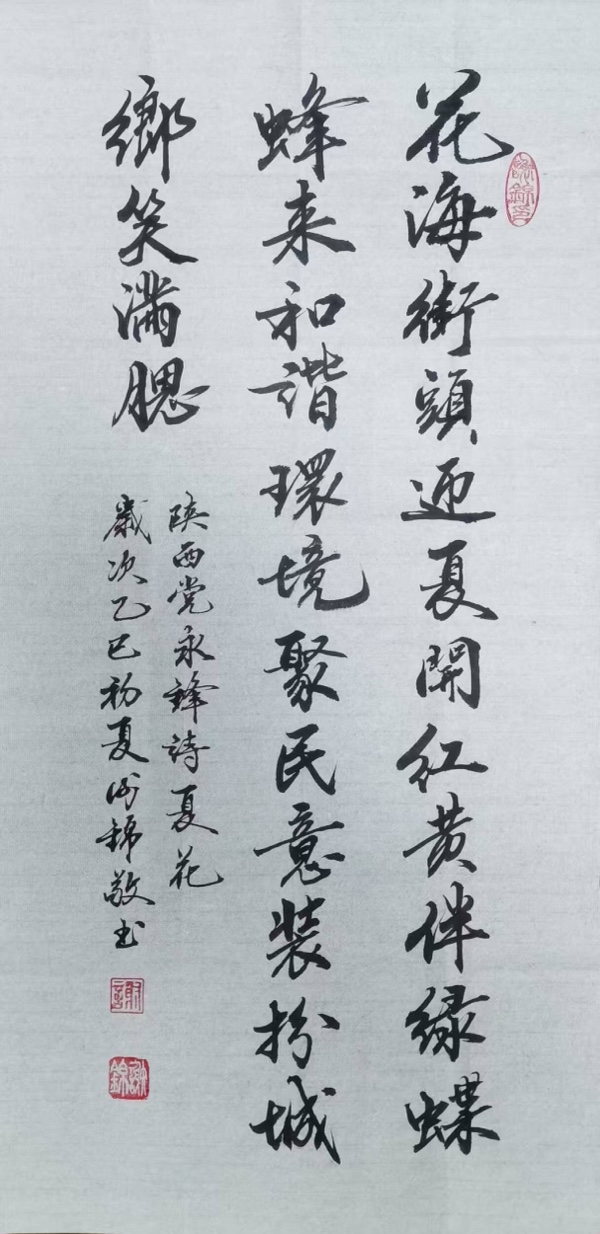 花海街頭迎夏開红黄伴绿蝶
蜂来和谐環境聚民意装扮城
鄉笑满腮
陕西党永鋒詩夏花
歲次乙巳初夏谢錦敬书
謝
錦